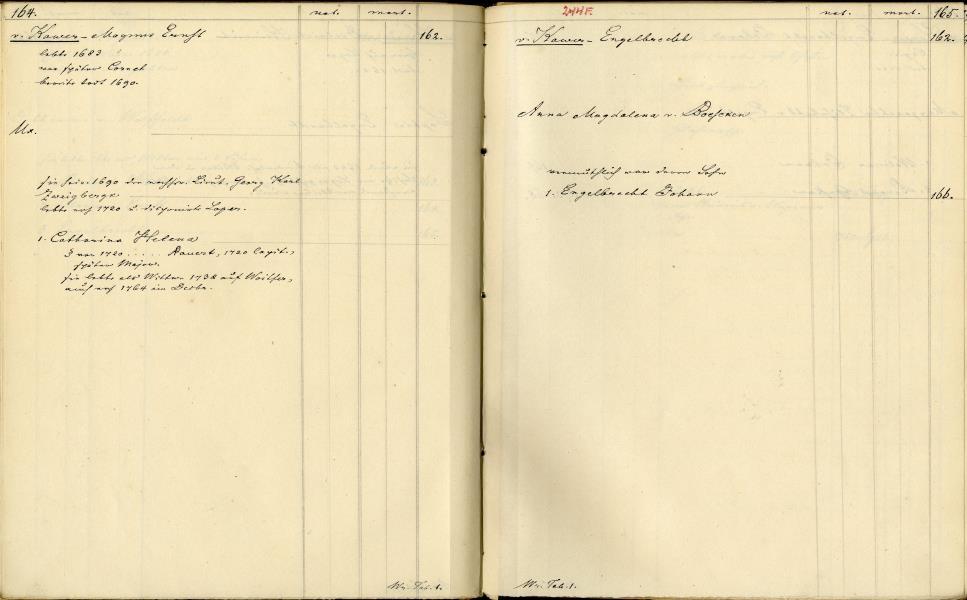 164. nat. mort.
v. Kawer - Magnus Ernst 162.
lebte 1683
war später Cornet
bereits todt 1690.
Ux.
sie heir. 1690 den Lieut. Georg Karl
Zweigbergk
lebte noch 1720 u. disponirte
1. Catharina Helena
vor 1720 ..... Rauert, 1720 Capit.,
später Major.
sie lebte als Wittwe 1738 auf
auch noch 1764 im
Wr. Tab. 1.
244F. nat. mort. 165.
v. Kawer - Engelbrecht 162.
Anna Magdalena v.
vermuthlich war deren Sohn
1. Engelbrecht Johann 166.
Wr. Tab. 1.